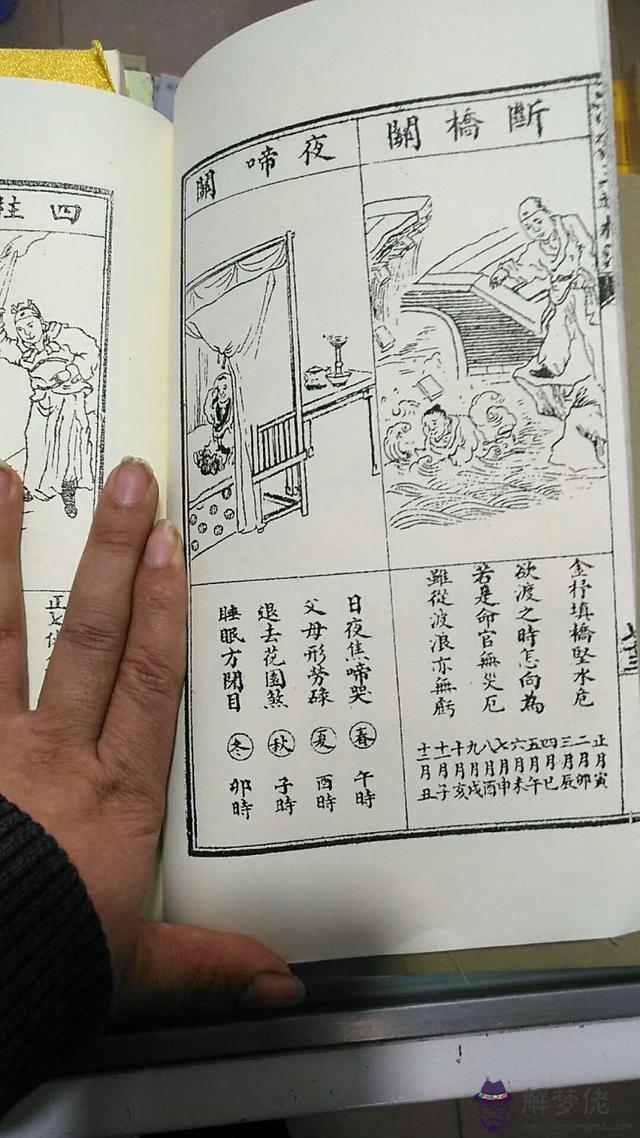 斷橋關
金抒填橋堅水危
欲渡之時怎向為
若是命官無災厄
雖從波浪亦無虧
正月寅
二月卯
三月辰
四月巳
五月午
六月未
七月申
八月酉
九月戌
十月亥
十一月子
十二月丑
夜啼關
日夜焦啼哭
父母形勞碌
退去花園煞
睡眠方閉目
春 午時
夏 酉時
秋 子時
冬 卯時
七十三
四柱
解梦佬
www.jiemenglao.com